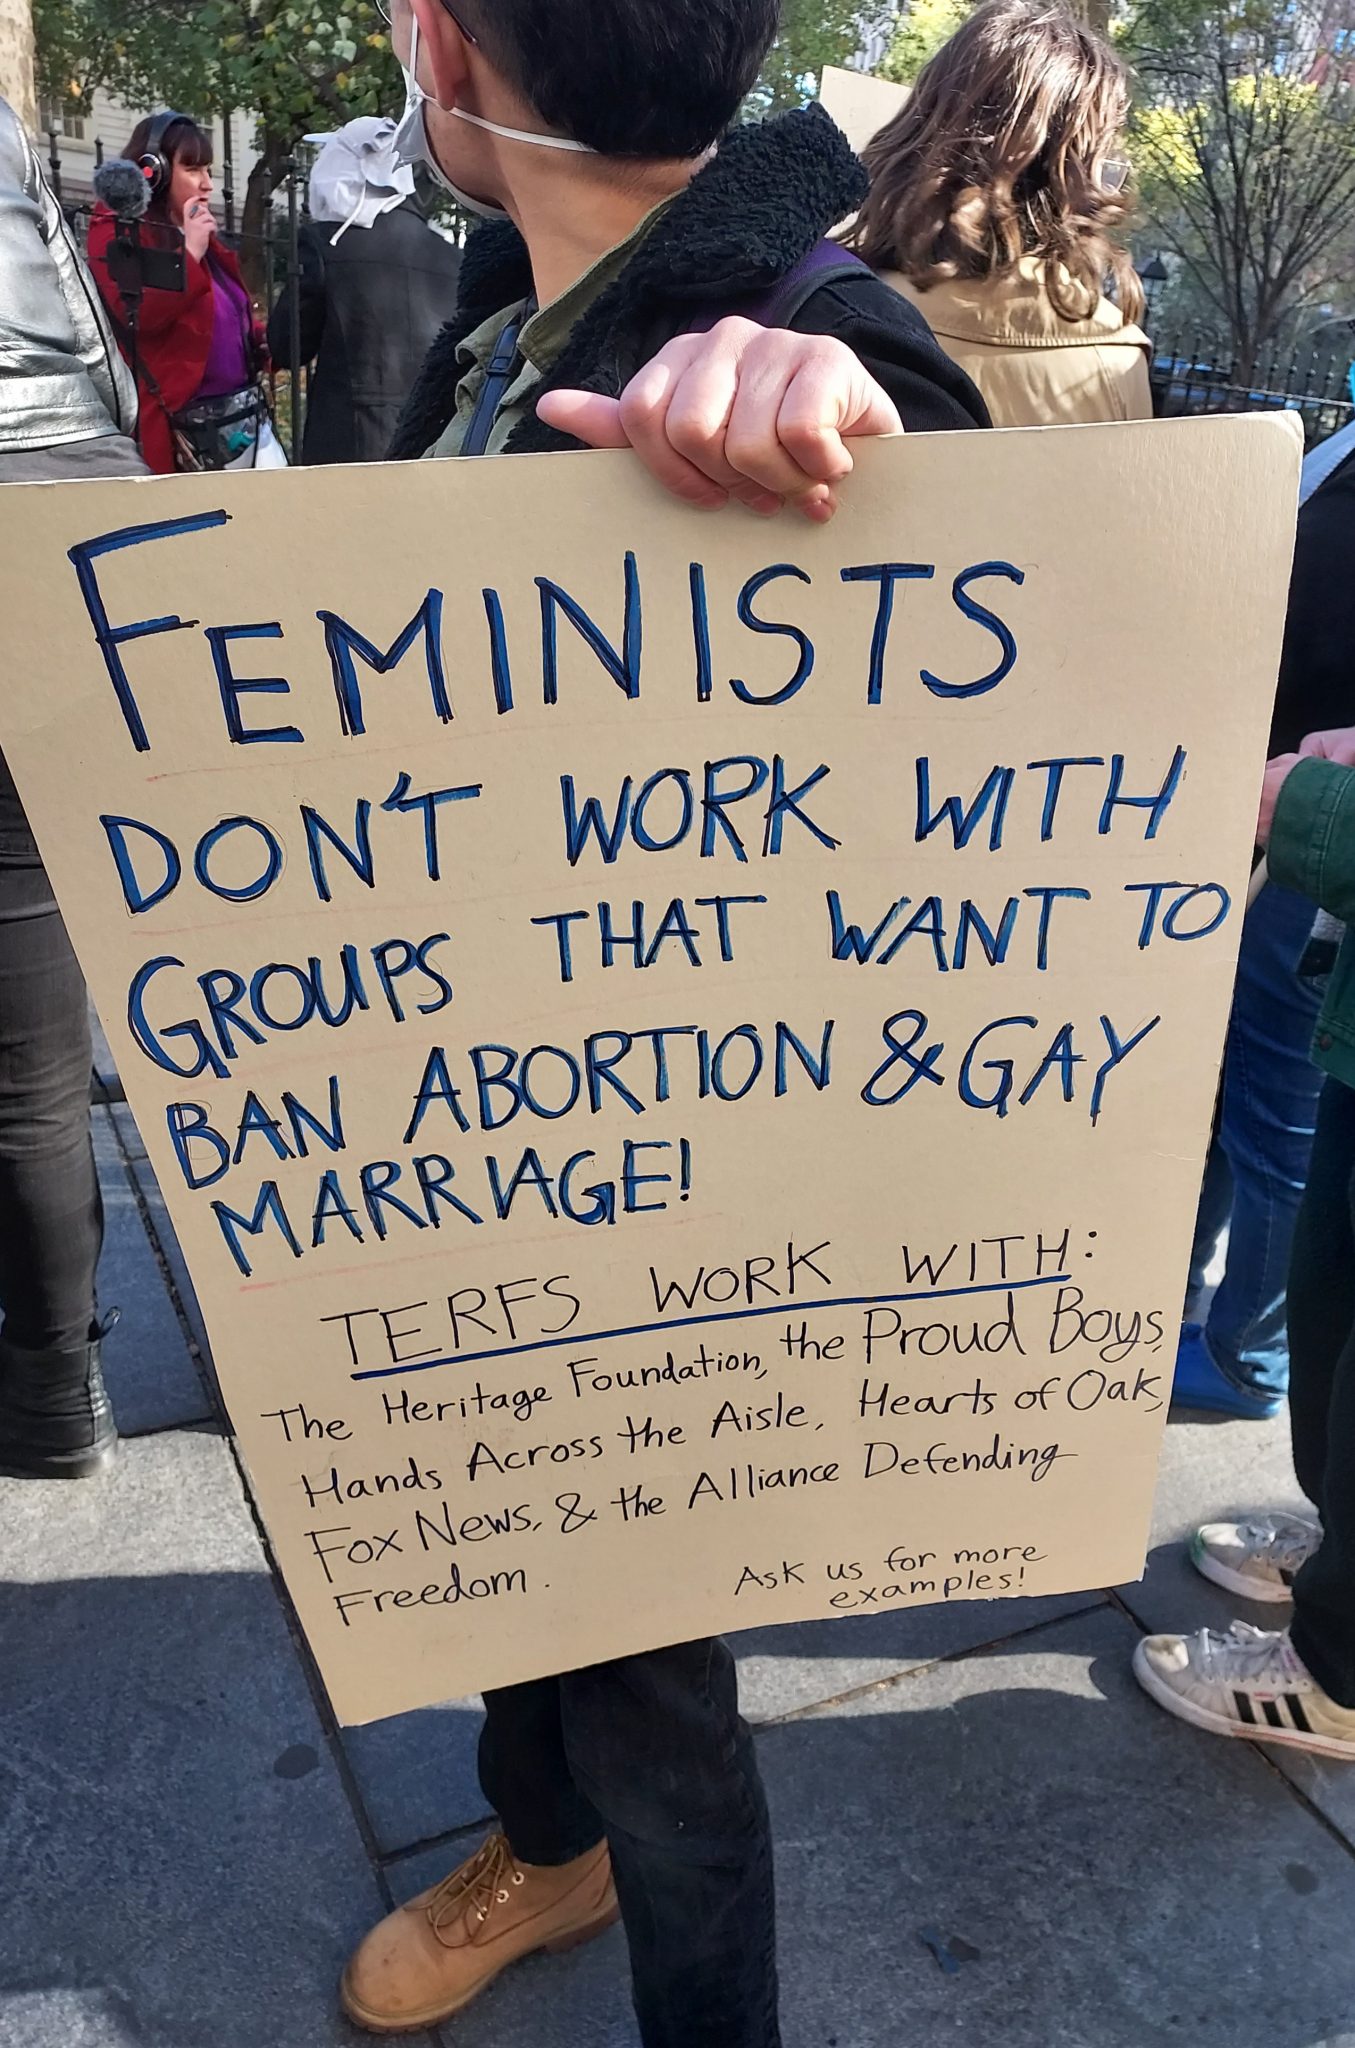 FEMINISTS
DON'T WORK WITH
GROUPS THAT WANT TO
BAN ABORTION & GAY
MARRIAGE!
TERFS WORK WITH:
The Heritage Foundation, the Proud Boys,
Hands Across the Aisle, Hearts of Oak,
Fox News, & the Alliance Defending
Freedom.
Ask us for more
examples!